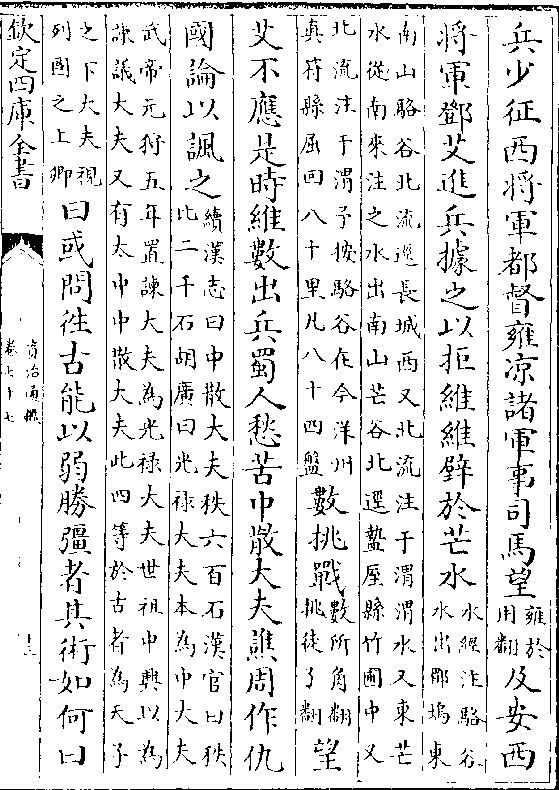 兵少征西將軍都督雍凉諸軍事司馬望雍於用翻及安西
將軍鄧艾進兵據之以拒維維壁於芒水水經注駱谷水出郿塢東
南山駱谷北流逕長城西又北流注于渭渭水又東芒
水從南來注之水出南山芒谷北逕盩厔縣竹圃中又
北流注于渭予按駱谷在今洋州
真符縣屈回八十里凡八十四盤數挑戰數所角翻挑徒了翻望
艾不應是時維數出兵蜀人愁苦中散大夫譙周作仇
國論以諷之續漢志曰中散大夫秩六百石漢官曰秩
比二千石胡廣曰光祿大夫本為中大夫
武帝元狩五年置諫大夫為光祿大夫世祖中興以為
諫議大夫又有太中中散大夫此四等於古者為天子
之下大夫視
列國之上卿曰或問徃古能以弱勝彊者其術如何曰
欽定四庫全書
資治通鑑
卷七十七
十三